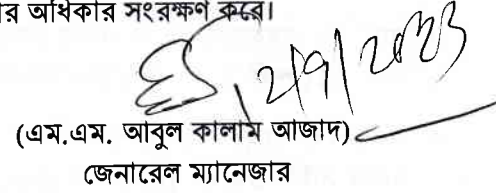 র অধিকার সংরক্ষণ করে।
(এম.এম. আবুল কালাম আজাদ)
জেনারেল ম্যানেজার